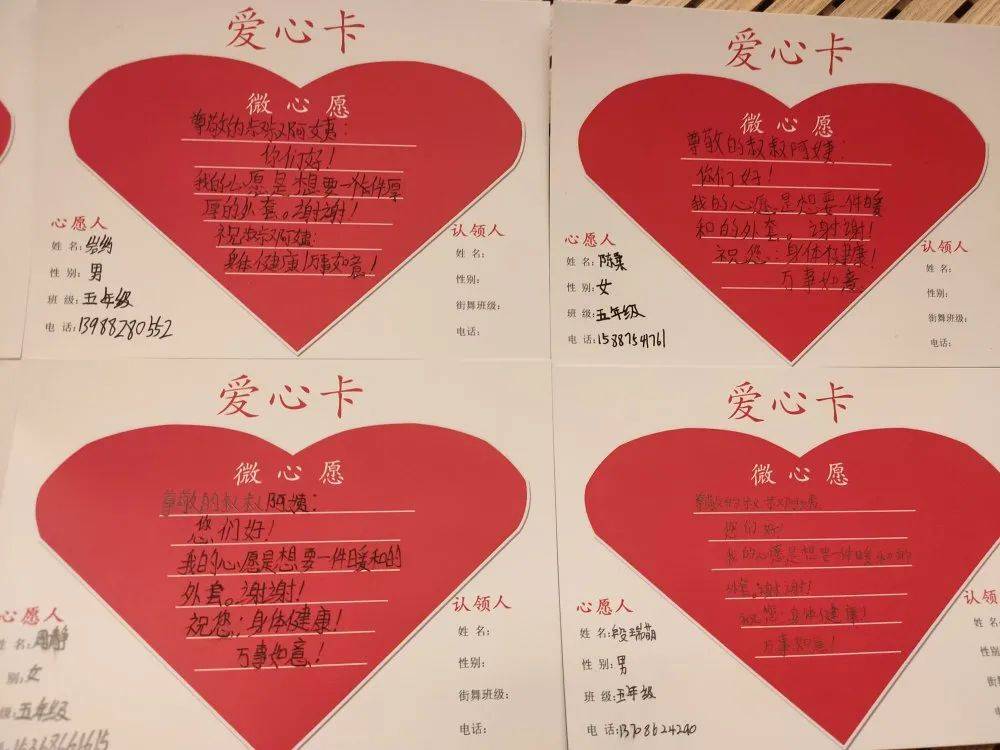 爱心卡
微心愿
尊敬的叔叔阿姨：
你们好！
我的心愿是想要一件厚
厚的外套。谢谢！
祝叔叔阿姨：
身体健康！万事如意！
心愿人
姓 名：岩约
性 别：男
班 级：五年级
电 话：13988280552
认领人
姓 名：
性别：
街舞班级：
电话：
爱心卡
微心愿
尊敬的叔叔阿姨：
你们好！
我的心愿是想要一件暖
和的外套。谢谢！
祝您：身体健康！
万事如意
心愿人
姓 名：陈
性 别：女
班 级：五年级
电 话：15887541761
认领人
姓名：
性别：
街舞班级：
电话：
爱心卡
微心愿
尊敬的叔叔阿姨：
您们好！
我的心愿是想要一件暖和的
外套。谢谢！
祝您：身体健康！
万事如意！
心愿人
姓 名：周静
别：女
级：五年级
认领人
姓 名：
性别：
街舞班级：
电话：
爱心卡
微心愿
尊敬的叔叔阿姨
您们好！
我的心愿是想要一件暖和的
外套。谢谢！
祝您：身体健康！
万事如意！
心愿人
姓 名：段瑞萌
性 别：男
班 级：五年级
电 话：13708624240
认领
姓名：
性别：
街舞班级：
电话：